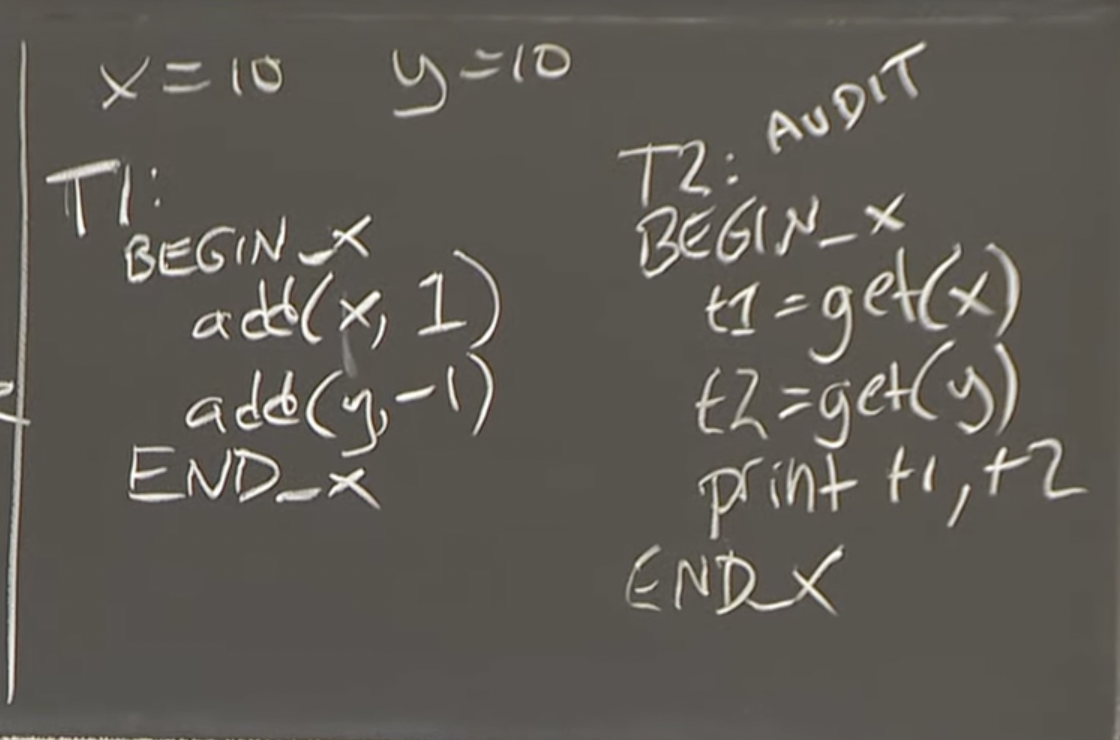 x=10 y=10
T1:
BEGIN_X
add(x, 1)
add(y,-1)
END_X
T2: AUDIT
BEGIN_X
t1=get(x)
t2=get(y)
print t1,t2
END_X